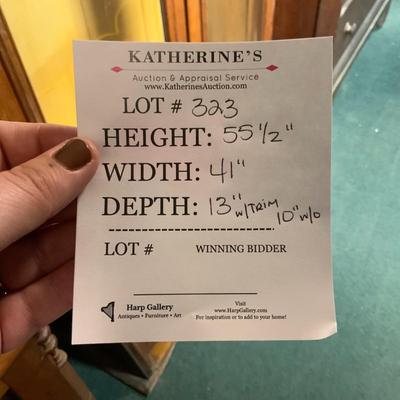 KATHERINE'S
Auction & Appraisal Service
www.KatherinesAuction.com
LOT # 323
HEIGHT: 55 1/2"
WIDTH: 41"
DEPTH: 13" w/TRIM 10" w/o
LOT # WINNING BIDDER
Harp Gallery
Antiques • Furniture • Art
Visit
www.HarpGallery.com
For inspiration or to add to your home!